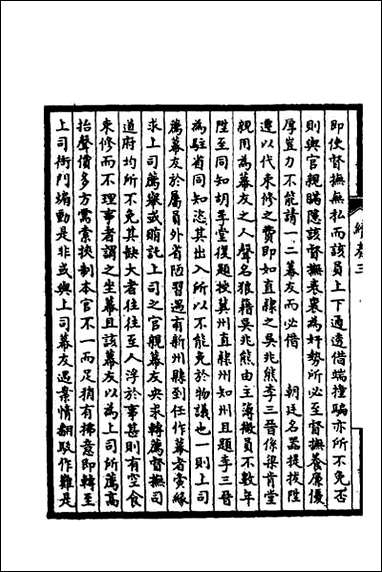 即使督撫無私而該員上下通透借端撞騙亦所不免否
則與官親瞞隱該督撫卷衷為奸勢所必至督撫養廉優
厚豈力不能請一二幕友而必借 朝廷名器提拔陞
遷以代束修之費即如直隸之吳兆熊李三晉係梁肯堂
親用為幕友之人聲名狼籍吳兆熊由主簿微員不數年
陞至同知胡季堂復題授冀州直隸州知州且題李三晉
為駐省同知恣其出入所以不能免於物議也一則上司
薦幕友於屬員外省陋習遇有新州縣到任作幕者夤緣
求上司薦舉或賄託上司之官親幕友央求轉薦督撫司
道府均所不免其缺大者往往至人浮於事甚則有空食
束修而不理事者謂之坐幕且該幕友以為上司所薦高
抬聲價多方需索挾制本官不一而足稍有拂意即轉至
上司衙門煽動是非或與上司幕友遇案情翻駁作難是
續卷三